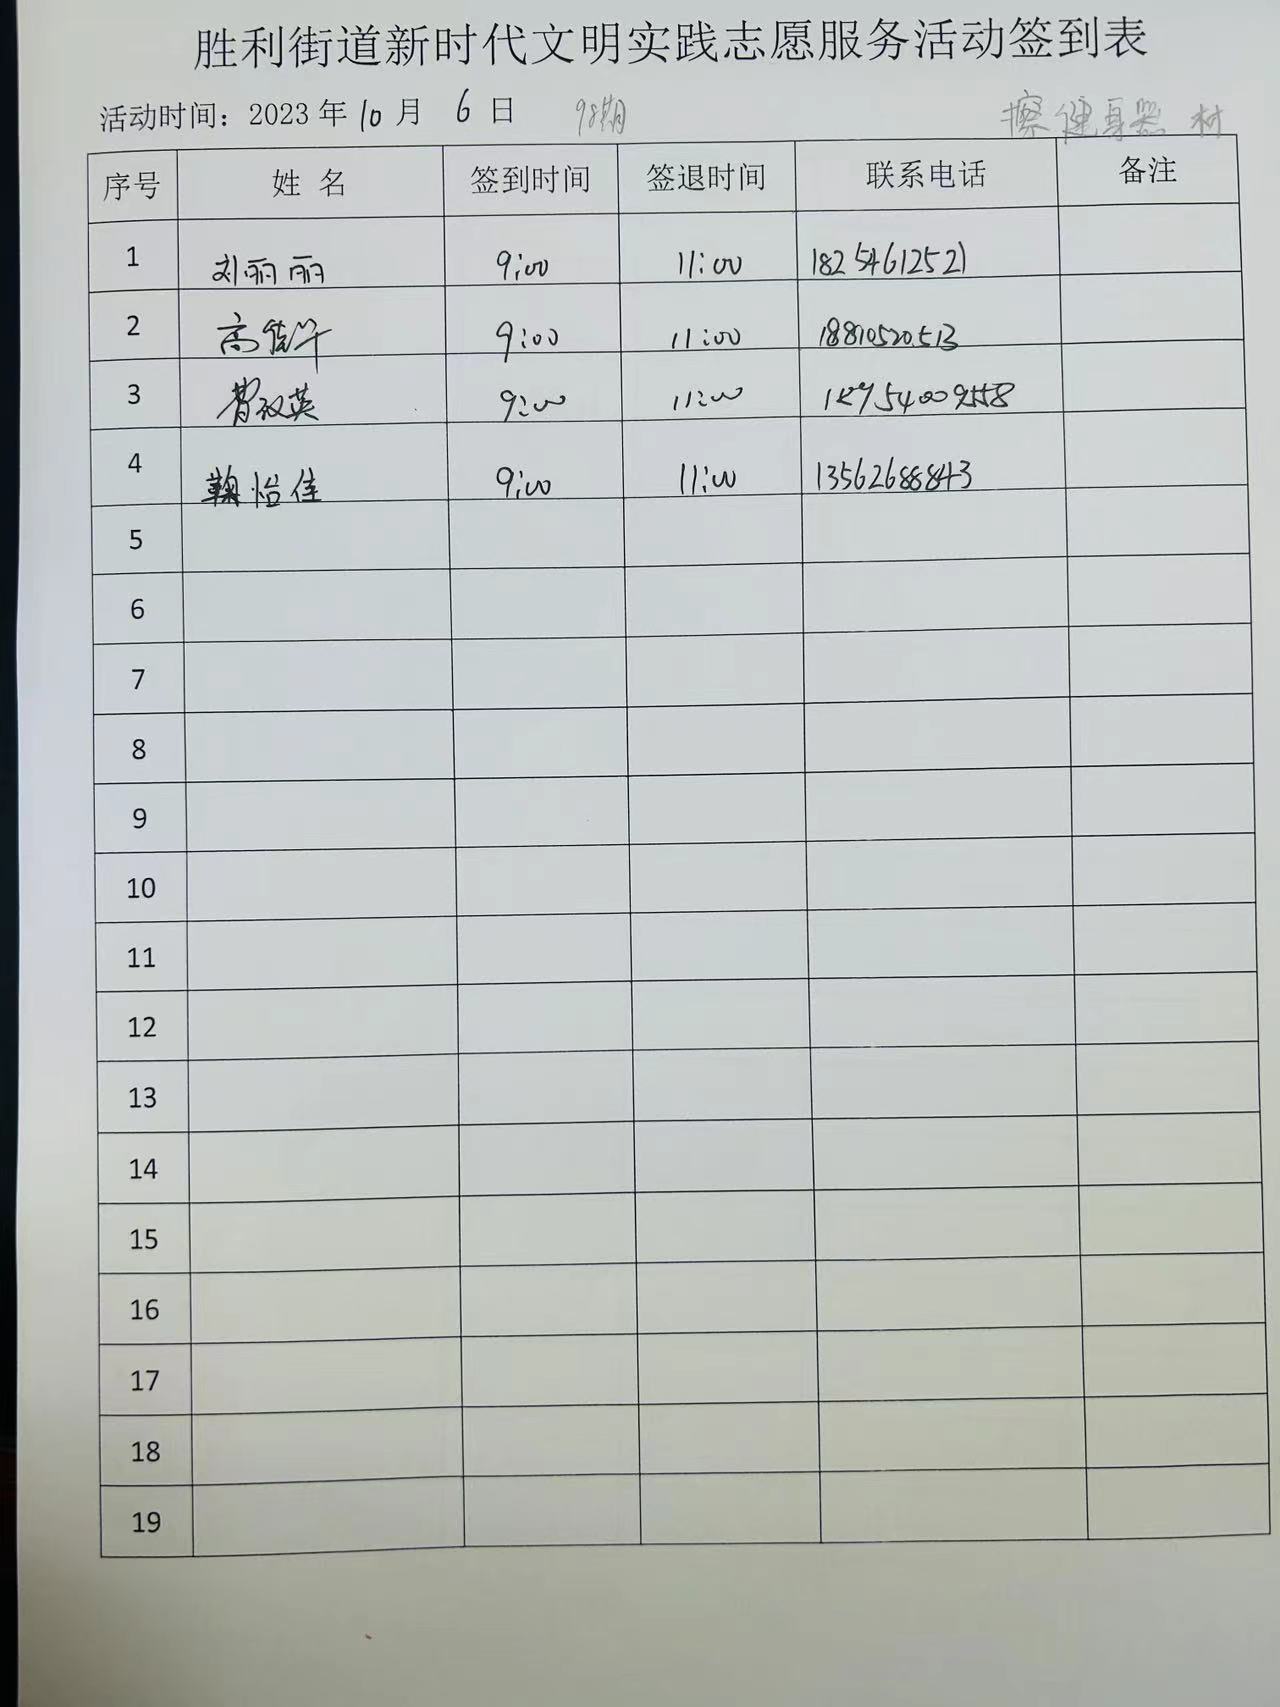 胜利街道新时代文明实践志愿服务活动签到表
活动时间：2023年10月6日 98期 擦健身器材
序号 姓名 签到时间 签退时间 联系电话 备注
1 刘丽丽 9:00 11:00 18254612521
2 高 9:00 11:00 18810520513
3 英 9:00 11:00
4 鞠怡佳 9:00 11:00 13562688843
5
6
7
8
9
10
11
12
13
14
15
16
17
18
19